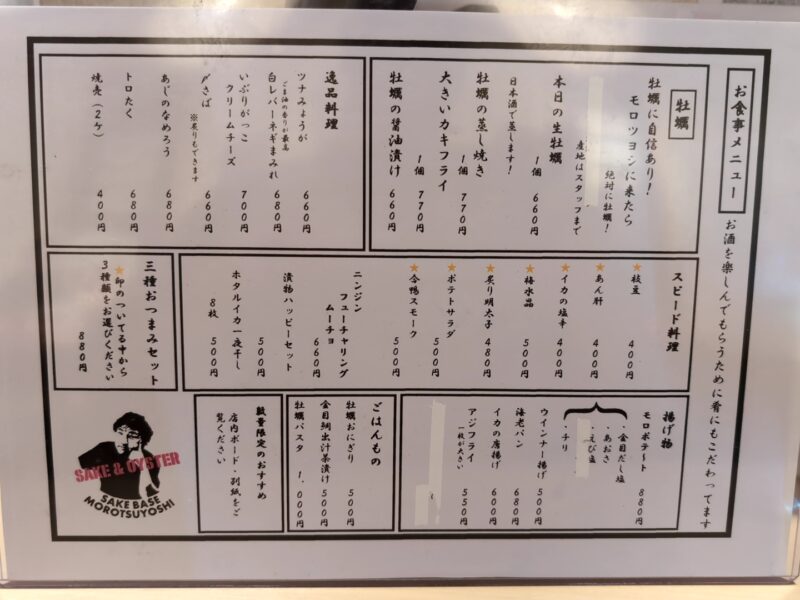 お食事メニュー
お酒を楽しんでもらうために肴にもこだわってます
牡蠣
牡蠣に自信あり!
モロツヨシに来たら
絶対に牡蠣!
産地はスタッフまで
本日の生牡蠣
1個 660円
日本酒で蒸します!
牡蠣の蒸し焼き
1個 770円
大きいカキフライ
1個 770円
牡蠣の醤油漬け
660円
逸品料理
ツナみょうが
660円
ごま油の香りが最高
白レバーネギまみれ
680円
いぶりがっこ
クリームチーズ
700円
〆さば
660円
※炙りもできます
あじのなめろう
680円
トロたく
680円
焼売(2ケ)
400円
スピード料理
★枝豆
400円
★あん肝
400円
★イカの塩辛
400円
★梅水晶
500円
★炙り明太子
480円
★ポテトサラダ
500円
★合鴨スモーク
500円
ニンジン
フューチャリング
ムーチョ
660円
漬物ハッピーセット
500円
ホタルイカ一夜干し
8枚 500円
三種おつまみセット
★印のついてる中から
3種類をお選びください
880円
揚げ物
モロポテ〜ト
880円
・金目だし塩
・あおさ
・えび塩
・チリ
ウインナー揚げ
500円
海老パン
680円
イカの唐揚げ
600円
アジフライ
一枚が大きい
550円
ごはんもの
牡蠣おにぎり
500円
金目鯛出汁茶漬け
500円
牡蠣パスタ
1,000円
数量限定のおすすめ
店内ボード・別紙をご
覧ください
SAKE & OYSTER
SAKE BASE
MOROTSUYOSHI